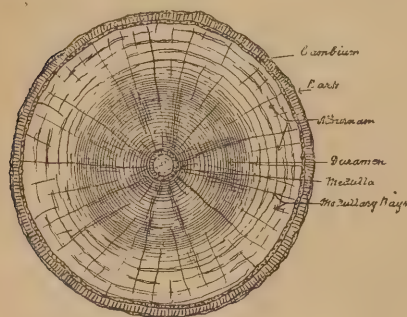 Cambium
Bark
Alburnam
Duramen
Medulla
Medullary Rays